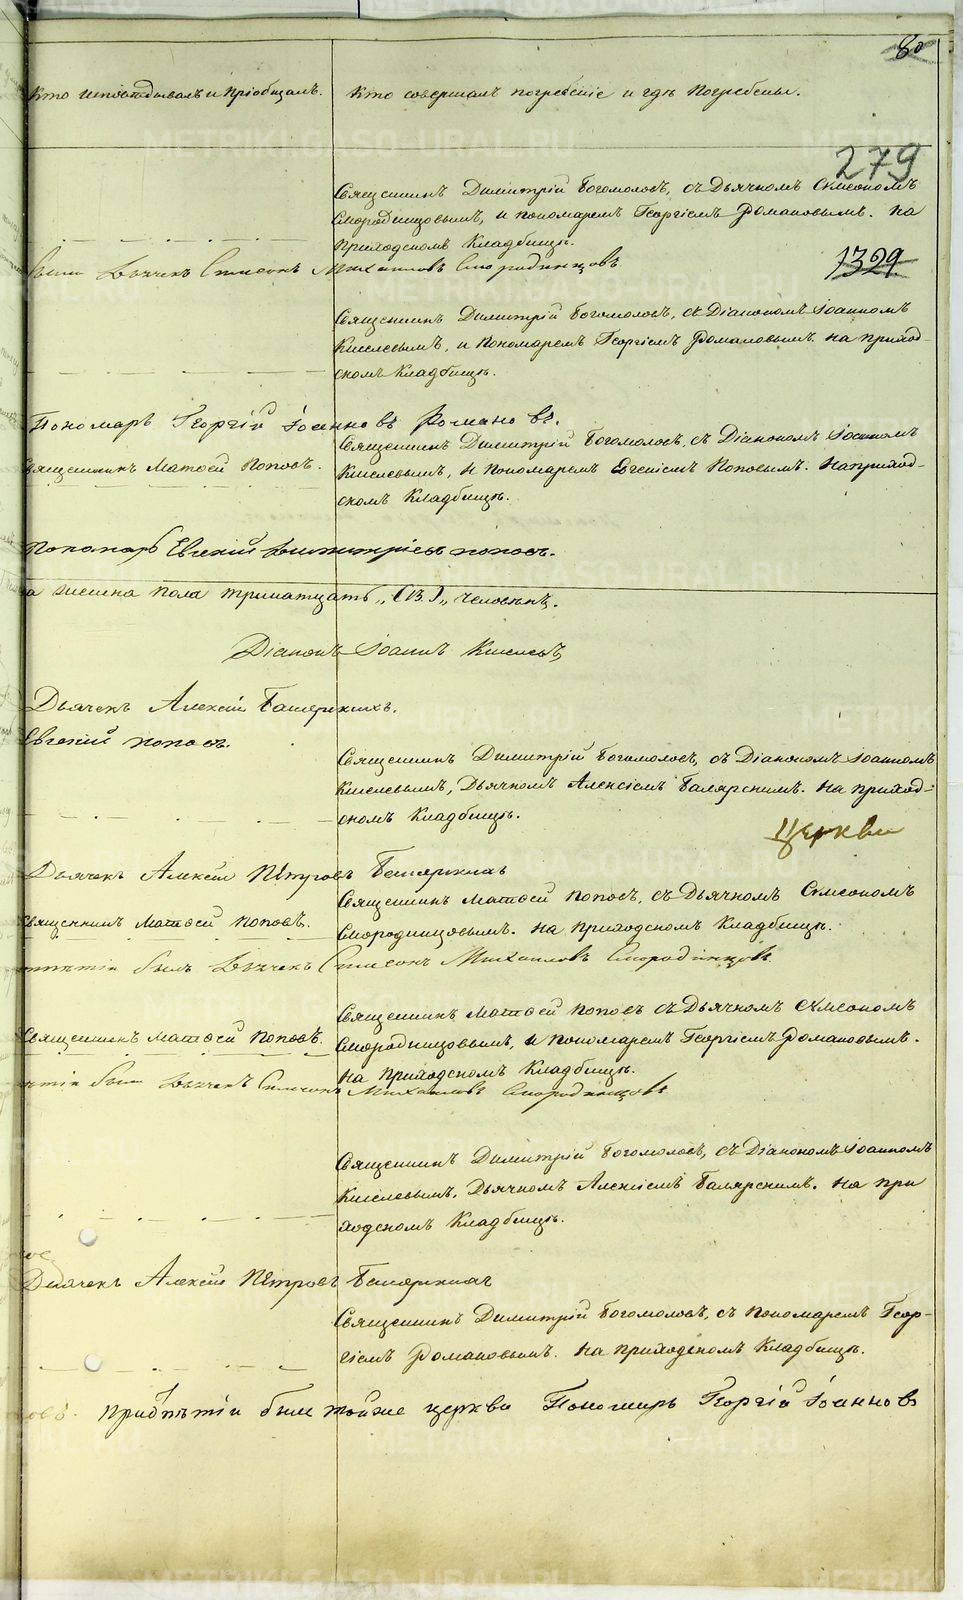 80
Кто исповѣдывалъ и пріобщалъ. Кто совершалъ погребеніе и гдѣ погребены.
279
Священникъ Димитрій Богомоловъ, съ Дьячкомъ Симеономъ
Смородинцовымъ, и пономаремъ Георгіемъ Романовымъ. на
приходскомъ Кладбищѣ.
были Дьячекъ Симеонъ Михаиловъ Смородинцовъ
1329
Священникъ Димитрій Богомоловъ, съ Діакономъ Іоанномъ
Киселевымъ, и Пономаремъ Георгіемъ Романовымъ. на приход-
скомъ Кладбищѣ.
Пономарь Георгій Іоанновъ Романовъ.
Священникъ Димитрій Богомоловъ, съ Діакономъ Іоанномъ
Священникъ Матѳей Поповъ. Киселевымъ, и Пономаремъ Евгеніемъ Поповымъ. На приход-
скомъ Кладбищѣ.
Пономарь Евгеній Димитріевъ поповъ.
а женска пола тринатцать „(13)„ человѣкъ.
Діаконъ Іоаннъ Киселевъ
Дьячекъ Алексій Башяркихъ.
Евгеній поповъ.
Священникъ Димитрій Богомоловъ, съ Діакономъ Іоанномъ
Киселевымъ, Дьячкомъ Алексіемъ Балярскимъ. на приход-
скомъ Кладбищѣ.
Церкви
Дьячекъ Алексій Пѣтровъ
Священникъ Матѳей Поповъ, съ Дьячкомъ Симеономъ
Священникъ Матѳей Поповъ. Смородинцовымъ. на приходскомъ Кладбищѣ.
былъ Дьячекъ Симеонъ Михаиловъ Смородинцовъ
Священникъ Матѳей Поповъ съ Дьячкомъ Симеономъ
Священникъ Матѳей Поповъ. Смородинцовымъ, и пономаремъ Георгіемъ Романовымъ.
на приходскомъ Кладбищѣ.
были Дьячекъ Симеонъ Михаиловъ Смородинцовъ
Священникъ Димитрій Богомоловъ, съ Діакономъ Іоанномъ
Киселевымъ, Дьячкомъ Алексіемъ Балярскимъ. на при
ходскомъ Кладбищѣ.
Дьячекъ Алексій Пѣтровъ
Священникъ Димитрій Богомоловъ, съ пономаремъ Геор-
гіемъ Романовымъ. на приходскомъ Кладбищѣ.
были тойже церкви Пономарь Георгій Іоанновъ
METRIKI.GASO-URAL.RU